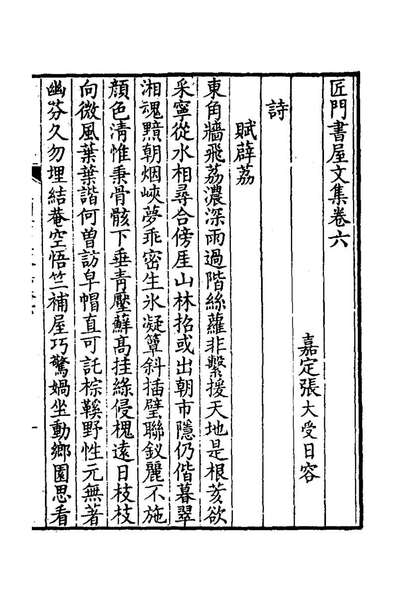 匠門書屋文集卷六
嘉定張大受日容
詩
賦薜荔
東角牆飛荔濃深雨過階絲蘿非繫援天地是根荄欲
采寧從水相尋合傍厓山林招或出朝市隱仍偕暮翠
湘魂黯朝烟峽夢乖密生氷凝簟斜插璧聯釵麗不施
顔色清惟秉骨骸下垂青壓蘚高挂綠侵槐遠日枝枝
向微風葉葉諧何曽訪皁帽直可託棕鞵野性元無著
幽芬久勿埋結菴空悟竺補屋巧驚媧坐動鄉園思看